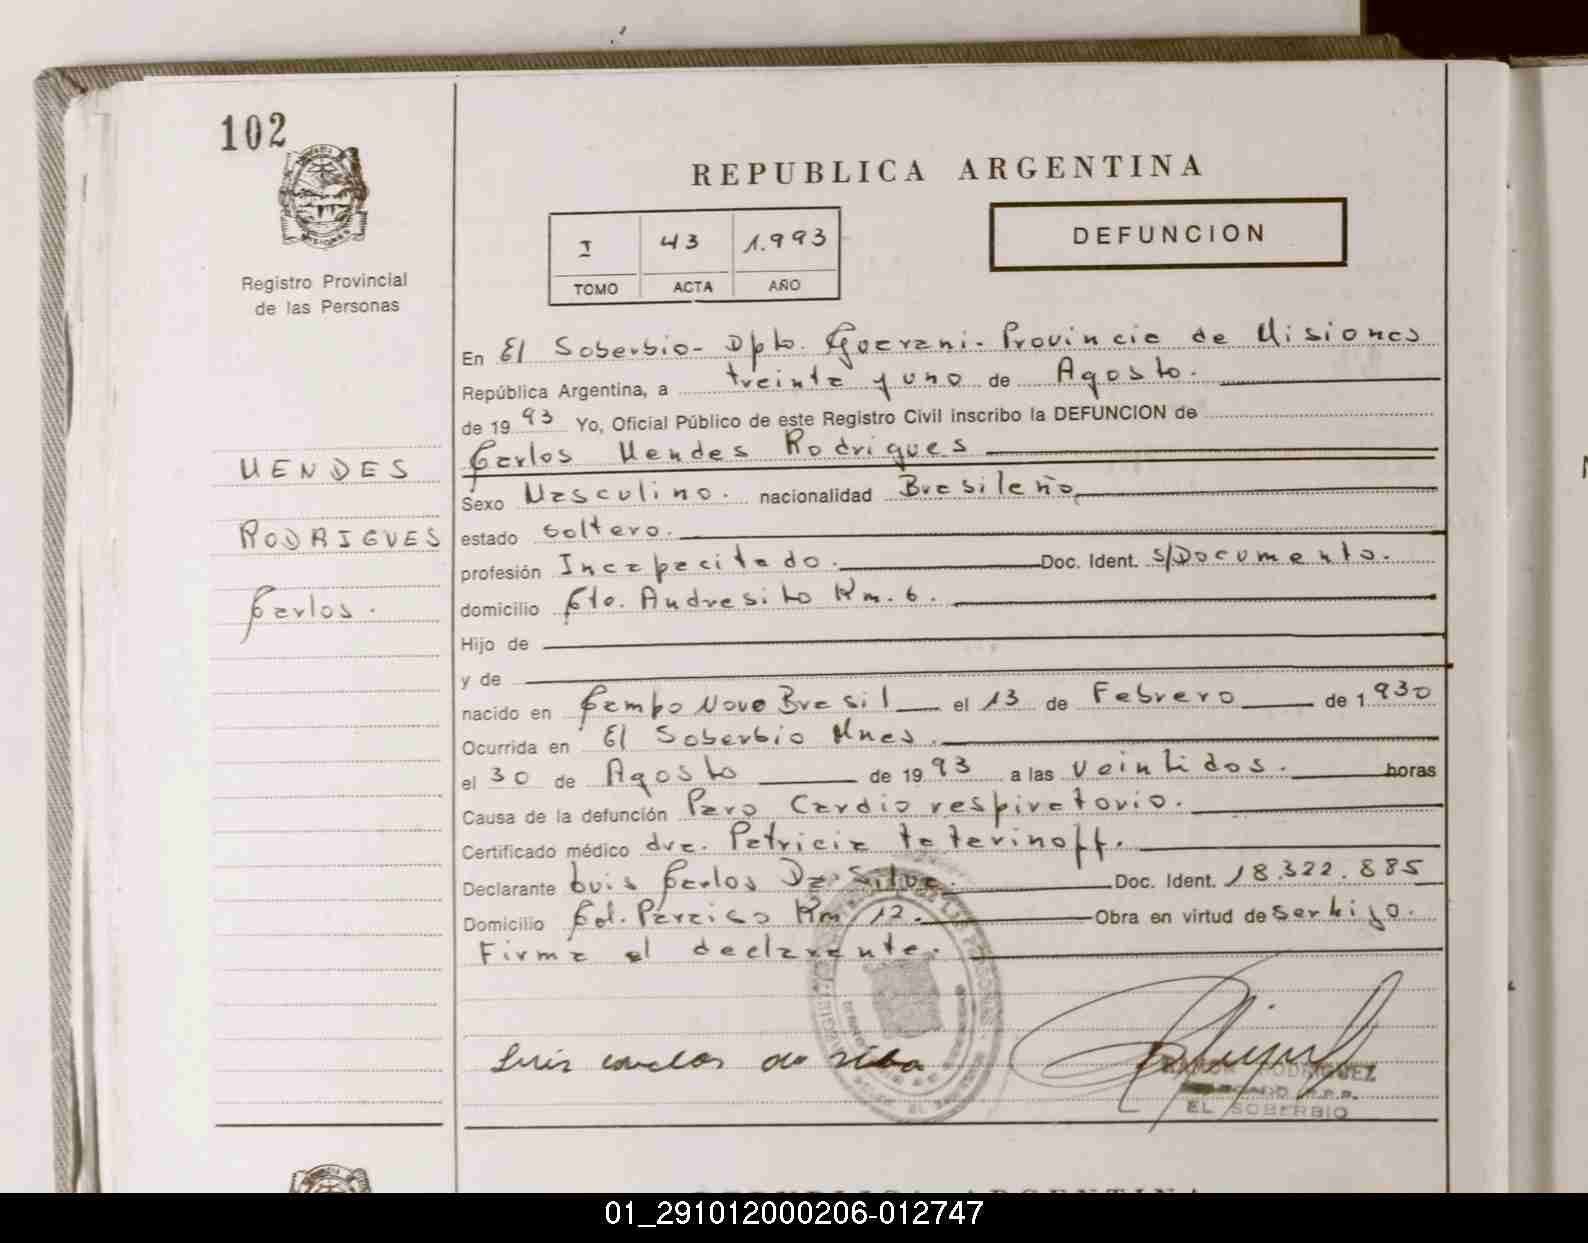 102
Registro Provincial
de las Personas
REPUBLICA ARGENTINA
I 43 1.993
TOMO ACTA AÑO
DEFUNCION
En El Soberbio- Dpto. Guarani- Provincia de Misiones
República Argentina, a treinta y uno de Agosto.
de 19 93 Yo, Oficial Público de este Registro Civil inscribo la DEFUNCION de
Carlos Mendes Rodrigues
MENDES
RODRIGUES
Carlos.
Sexo Masculino. nacionalidad Brasileño
estado soltero.
profesión Incapacitado. Doc. Ident. s/Documento.
domicilio Cto. Andresito Km. 6.
Hijo de
y de
nacido en Campo Novo Brasil el 13 de Febrero de 1930
Ocurrida en El Soberbio Mnes.
el 30 de Agosto de 19 93 a las veintidos. horas
Causa de la defunción Paro Cardio respiratorio.
Certificado médico dra. Patricia
Declarante Luis Carlos Da Silva. Doc. Ident. 18.322.885
Domicilio Col. Paraiso Km 12. Obra en virtud de ser hijo.
Firma el declarante.
Luis carlos da silva
RAMON RODRIGUEZ
EL SOBERBIO
REPUBLICA ARGENTINA
01_291012000206-012747